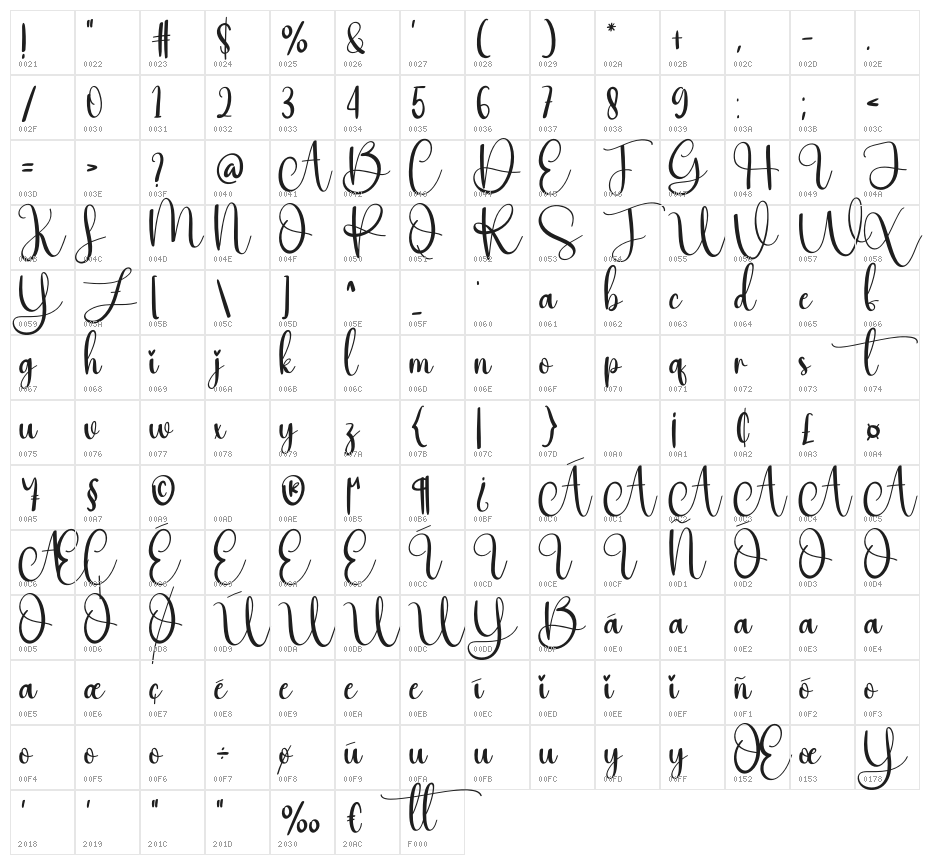 ! " # $ % & ' ( ) * + , - .
0021 0022 0023 0024 0025 0026 0027 0028 0029 002A 002B 002C 002D 002E
/ 0 1 2 3 4 5 6 7 8 9 : ; <
002F 0030 0031 0032 0033 0034 0035 0036 0037 0038 0039 003A 003B 003C
= > ? @ A B C D E F G H I J
003D 003E 003F 0040 0041 0042 0043 0044 0045 0046 0047 0048 0049 004A
K L M N O P Q R S T U V W X
004B 004C 004D 004E 004F 0050 0051 0052 0053 0054 0055 0056 0057 0058
Y Z [ \ ] ^ _ ` a b c d e f
0059 005A 005B 005C 005D 005E 005F 0060 0061 0062 0063 0064 0065 0066
g h i j k l m n o p q r s t
0067 0068 0069 006A 006B 006C 006D 006E 006F 0070 0071 0072 0073 0074
u v w x y z { | } ¡ ¢ £ ¤
0075 0076 0077 0078 0079 007A 007B 007C 007D 00A0 00A1 00A2 00A3 00A4
¥ § © ® µ ¶ ¿ Á A A A A A
00A5 00A7 00A9 00AD 00AE 00B5 00B6 00BF 00C0 00C1 00C2 00C3 00C4 00C5
Æ Ç É E E E Í I I I Ñ Ó O O
00C6 00C7 00C8 00C9 00CA 00CB 00CC 00CD 00CE 00CF 00D1 00D2 00D3 00D4
O O Ø Ú U U U Y B á a a a a
00D5 00D6 00D8 00D9 00DA 00DB 00DC 00DD 00DF 00E0 00E1 00E2 00E3 00E4
a æ ç é e e e í i i i ñ ó o
00E5 00E6 00E7 00E8 00E9 00EA 00EB 00EC 00ED 00EE 00EF 00F1 00F2 00F3
o o o ÷ ø ú u u u y y Œ œ Y
00F4 00F5 00F6 00F7 00F8 00F9 00FA 00FB 00FC 00FD 00FF 0152 0153 0178
' ' " " ‰ € tt
2018 2019 201C 201D 2030 20AC F000